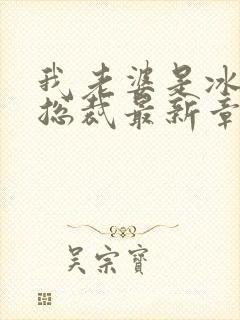 我老婆是冰
总裁最新章
吴宗宝